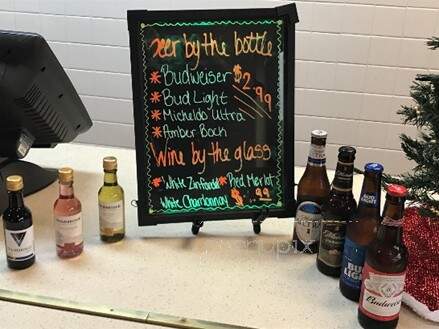 Beer by the bottle
* Budweiser $2.99
* Bud Light
* Micheldo Ultra
* Amber Boch
Wine by the glass
* White Zinfandel * Red Merlot
White Chardonnay $ .99
ULTRA
BUD
LIGHT
Budweiser